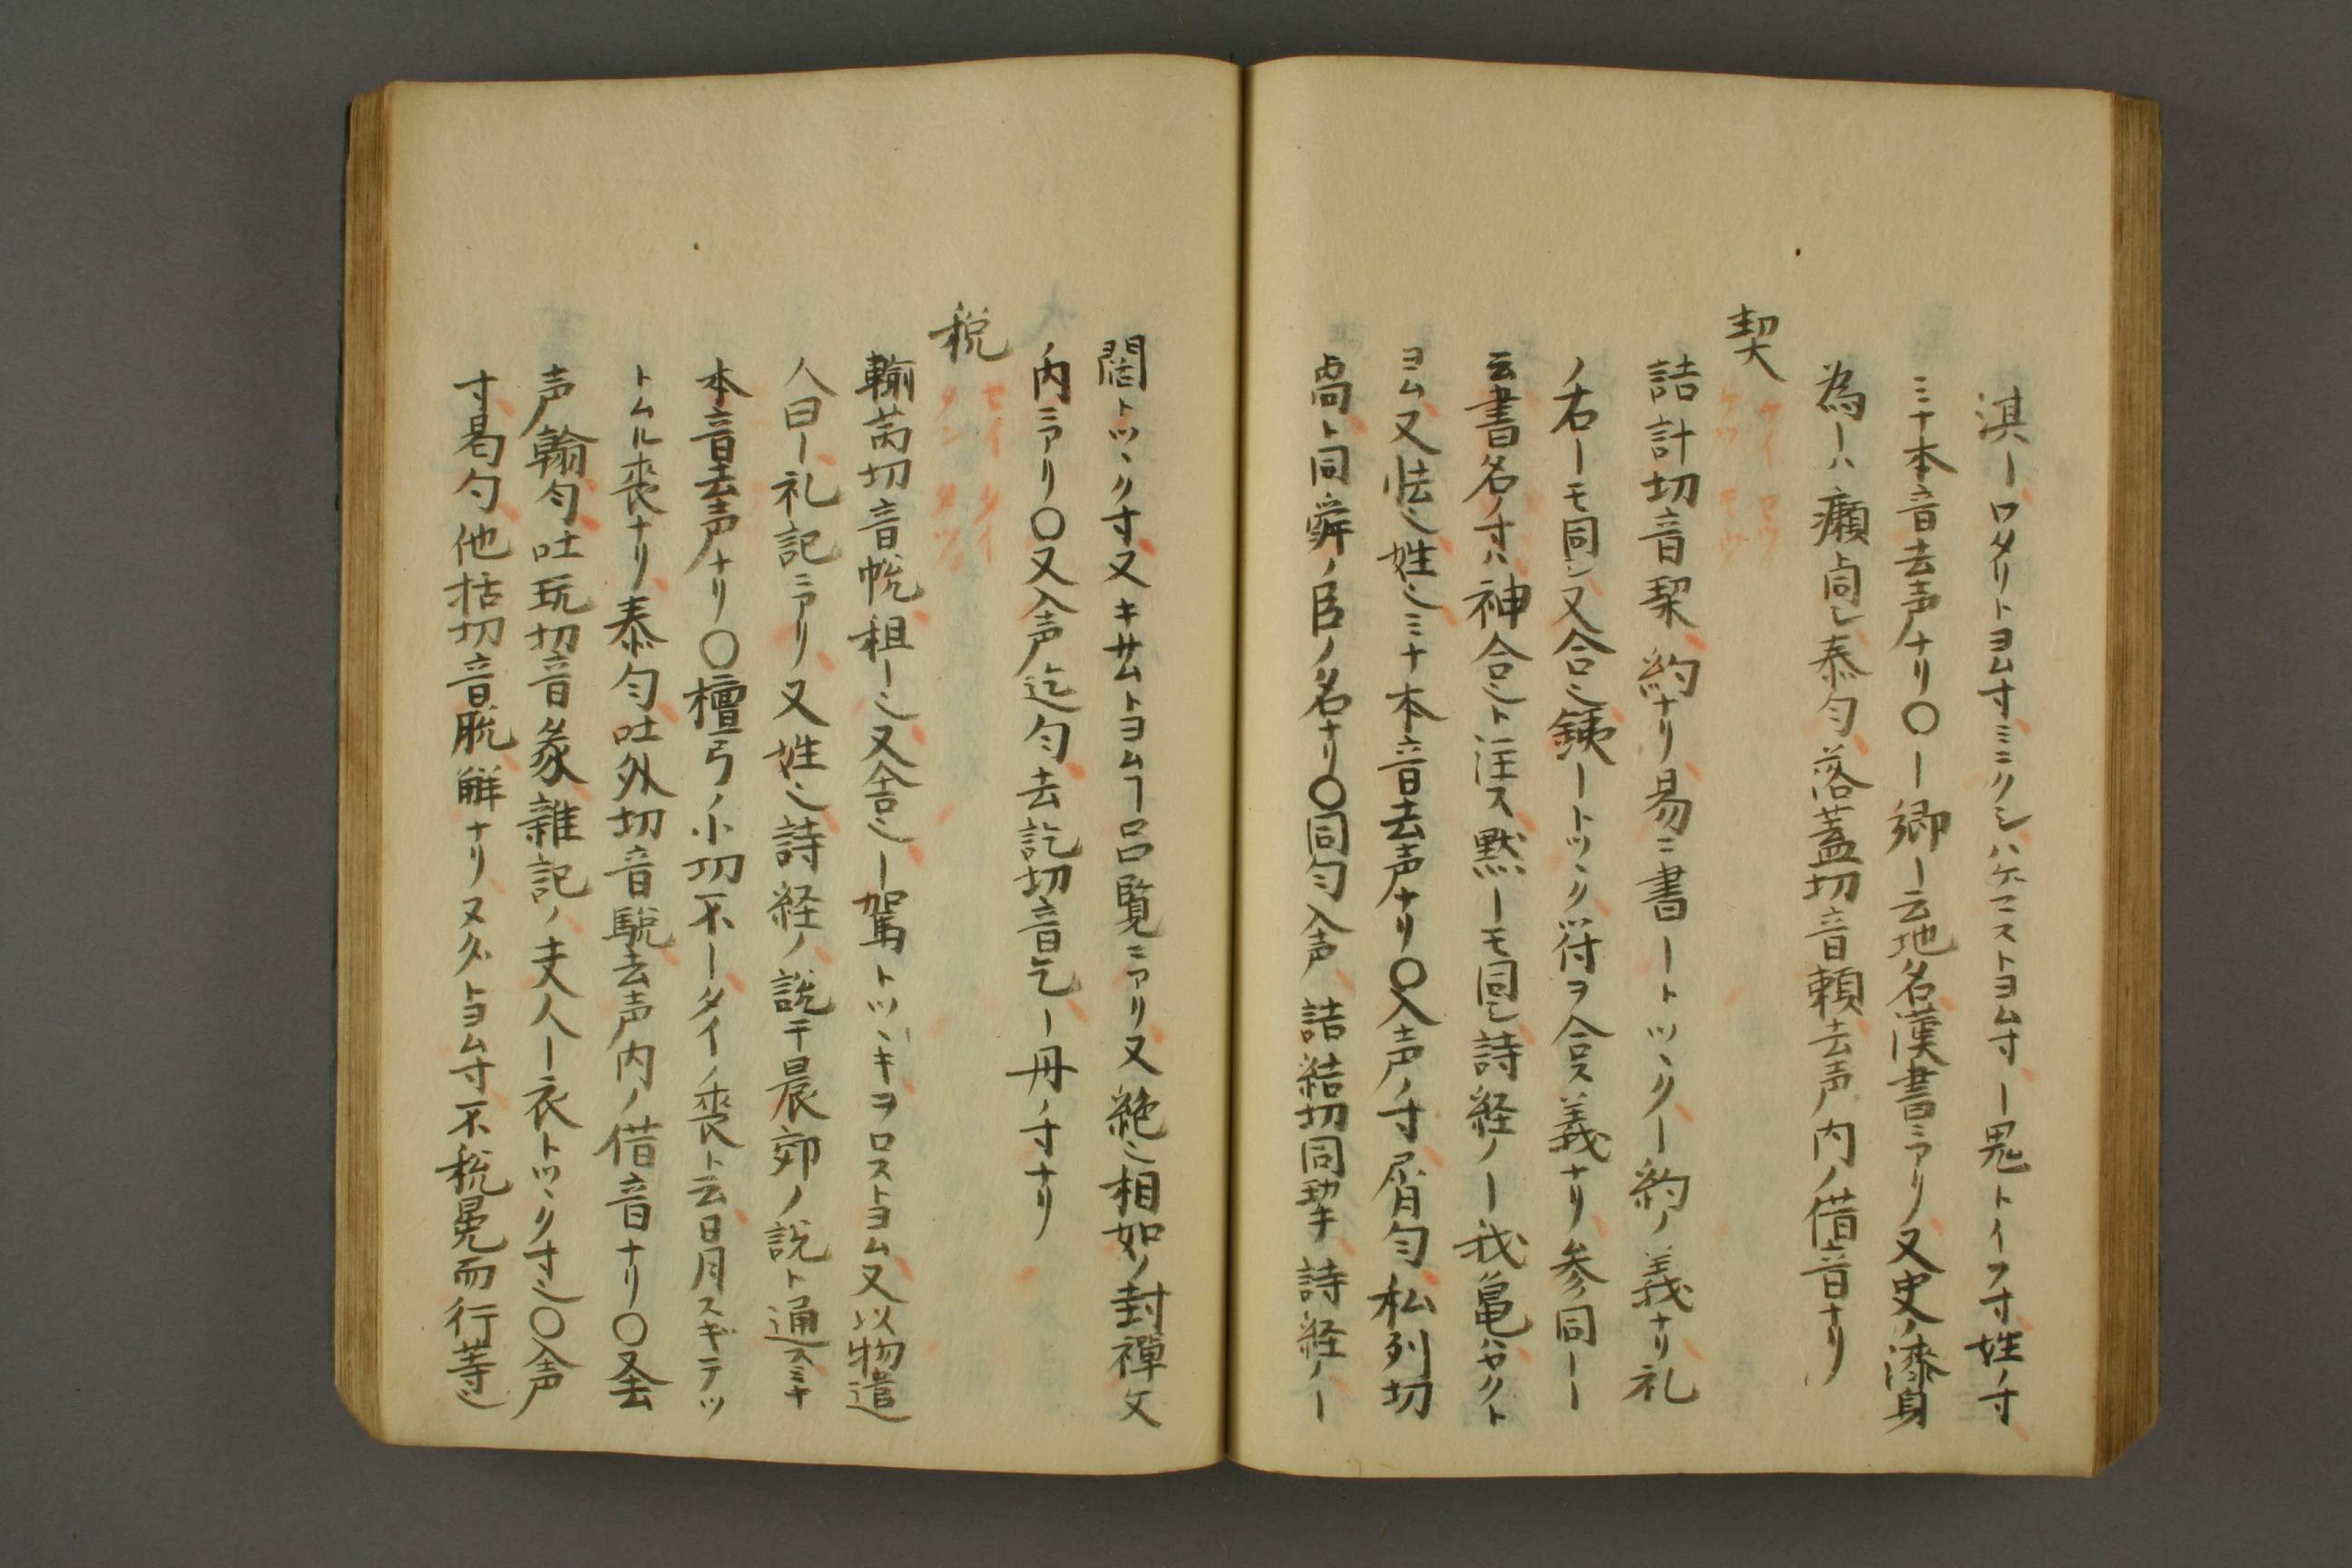 淇ーワタリトヨム寸ミニクシハゲマストヨム寸ー鬼トイフ寸姓ノ寸
ミナ本音去声ナリ〇ー郷ー云地名漢書ニアリ又史ノ漆身
為ーハ癩ト同シ泰勻落蓋切音頼去声内ノ借音ナリ
契 ケイ セツ ケツ キツ
詰計切音栔約ナリ易ニ書ートツヽクー約ノ義ナリ礼
ノ右ーモ同シ又合也銕ートツヽク符ヲ合ス義ナリ参同ー
云書名ノ寸ハ神合也ト注ス黙ーモ同シ詩経ノー我亀ハヤクト
ヨム又怯也姓也ミナ本音去声ナリ〇入声ノ寸屑勻私列切
卨ト同舜ノ臣ノ名ナリ〇同勻入声詰結切同挈詩経ノー
闊トツヽク寸又キサムトヨムヿ呂覧ニアリ又絶也相如ノ封禅文
ノ内ニアリ〇又入声迄勻去訖切音乞ー丹ノ寸ナリ
税 セイ タイ タン タツ
輸芮切音帨租ー也又舎也ー駕トツヽキヲロストヨム又以物遣
人曰ー礼記ニアリ又姓也詩経ノ説于晨郊ノ説ト通スミナ
本音去声ナリ〇檀弓ノ小切不ータイノ喪ト云日月スギテツ
トムル喪ナリ泰勻吐外切音駾去声内ノ借音ナリ〇又去
声翰勻吐玩切音彖雑記ノ夫人ー衣トツヽク寸也〇入声
寸曷勻他括切音脱觧ナリヌグトヨム寸不税冕而行等也